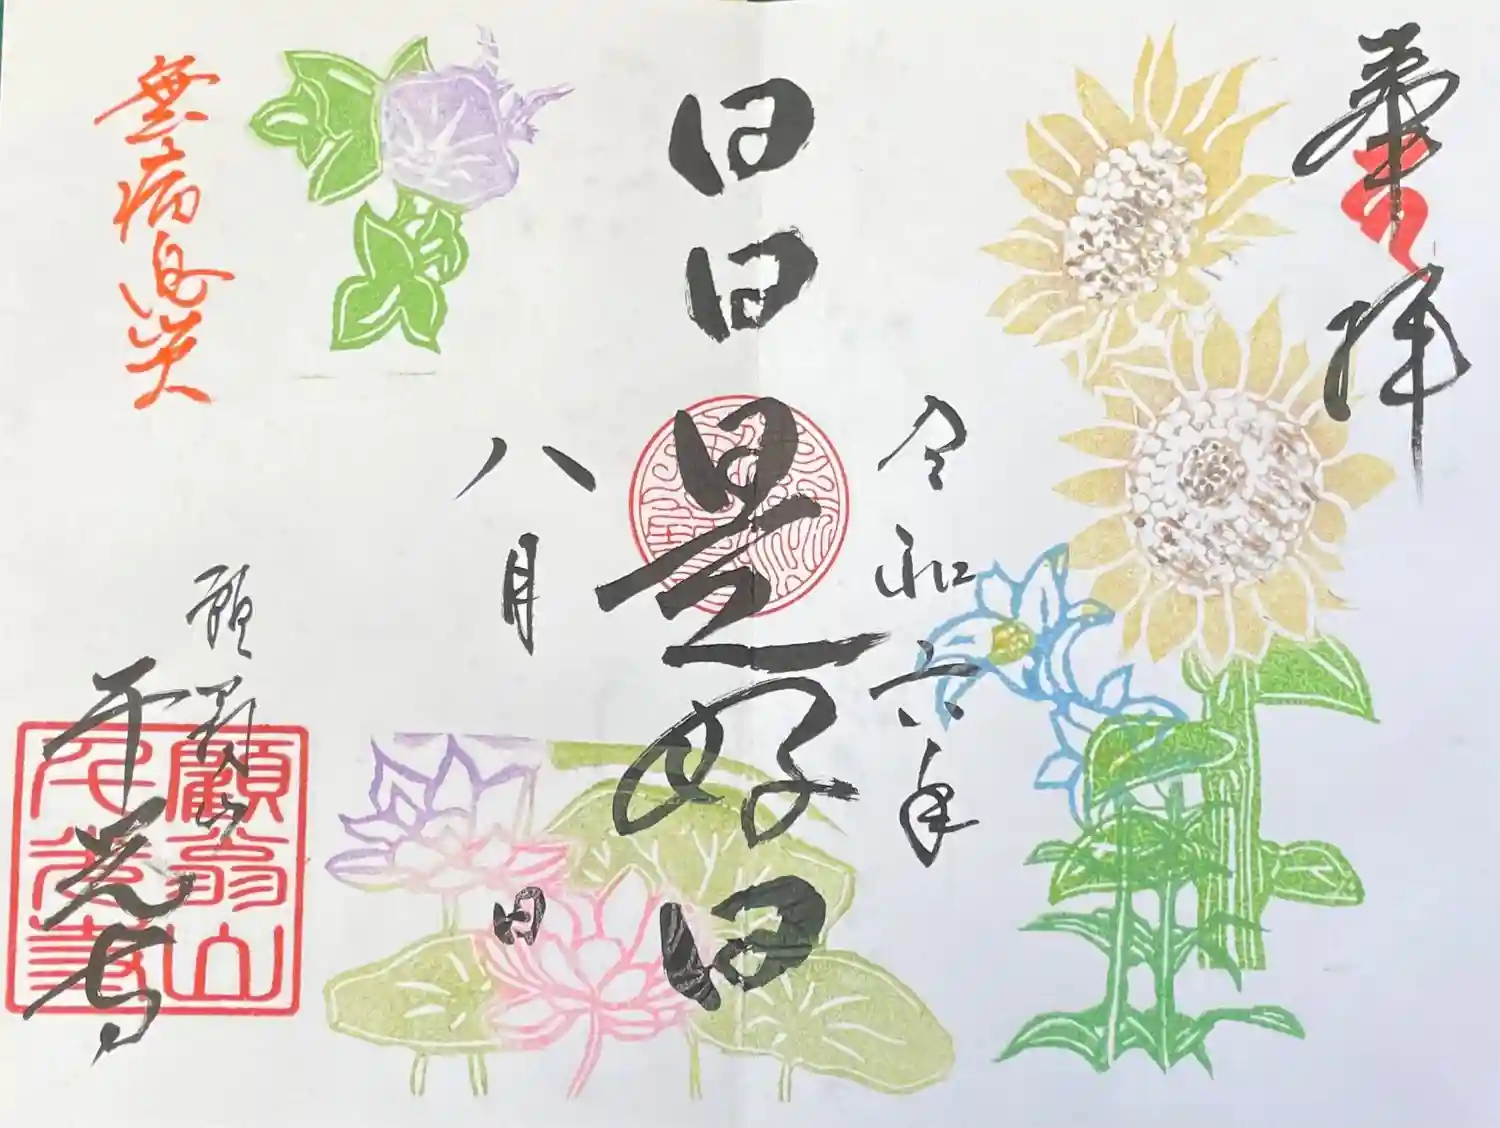 奉拝
令和六年
日日是好日
八月
日
無病息災
願翁山
千光寺
顧翁山
千光寺